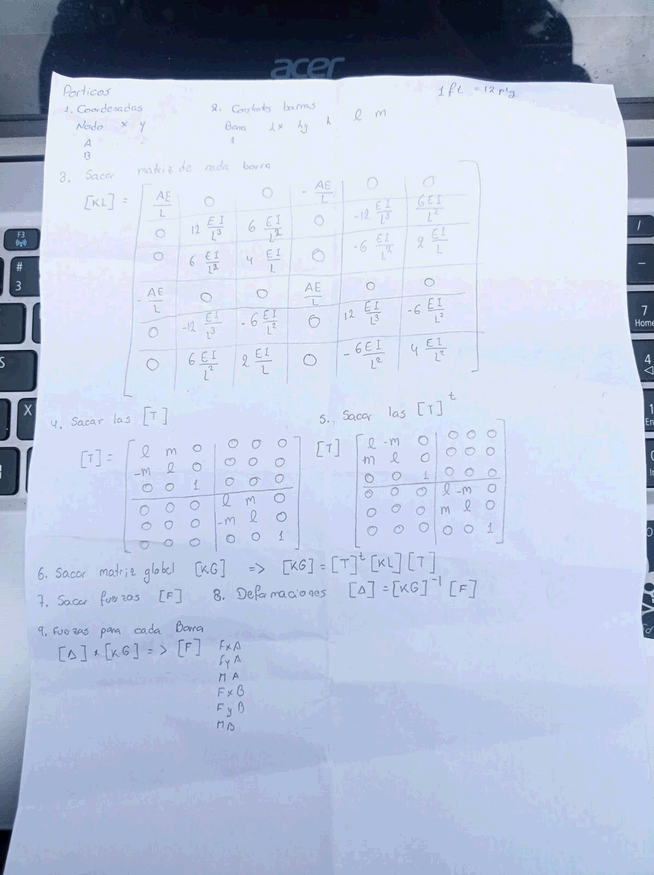 acer
Porticos
1 ft = 12 plg
1. Coordenadas
Nodo x y
A
B
2. Constantes barras
Barra λx λy L l m
1
3. Sacar matriz de cada barra
[KL] =
AE/L 0 0 - AE/L 0 0
0 12 EI/L³ 6 EI/L² 0 -12 EI/L³ 6EI/L²
0 6 EI/L² 4 EI/L 0 -6 EI/L² 2 EI/L
- AE/L 0 0 AE/L 0 0
0 -12 EI/L³ -6 EI/L² 0 12 EI/L³ -6 EI/L²
0 6 EI/L² 2 EI/L 0 -6 EI/L² 4 EI/L²
4. Sacar las [T]
[T] =
l m 0 0 0 0
-m l 0 0 0 0
0 0 1 0 0 0
0 0 0 l m 0
0 0 0 -m l 0
0 0 0 0 0 1
5. Sacar las [T]ᵗ
[T]
l -m 0 0 0 0
m l 0 0 0 0
0 0 1 0 0 0
0 0 0 l -m 0
0 0 0 m l 0
0 0 0 0 0 1
6. Sacar matriz global [KG] => [KG] = [T]ᵗ [KL] [T]
7. Sacar fuerzas [F] 8. Deformaciones [Δ] = [KG]⁻¹ [F]
9. Fuerzas para cada Barra
[Δ] x [KG] => [F]
FxA
FyA
MA
FxB
FyB
MB
F3
#
3
S
X
/
-
7
Home
4
1